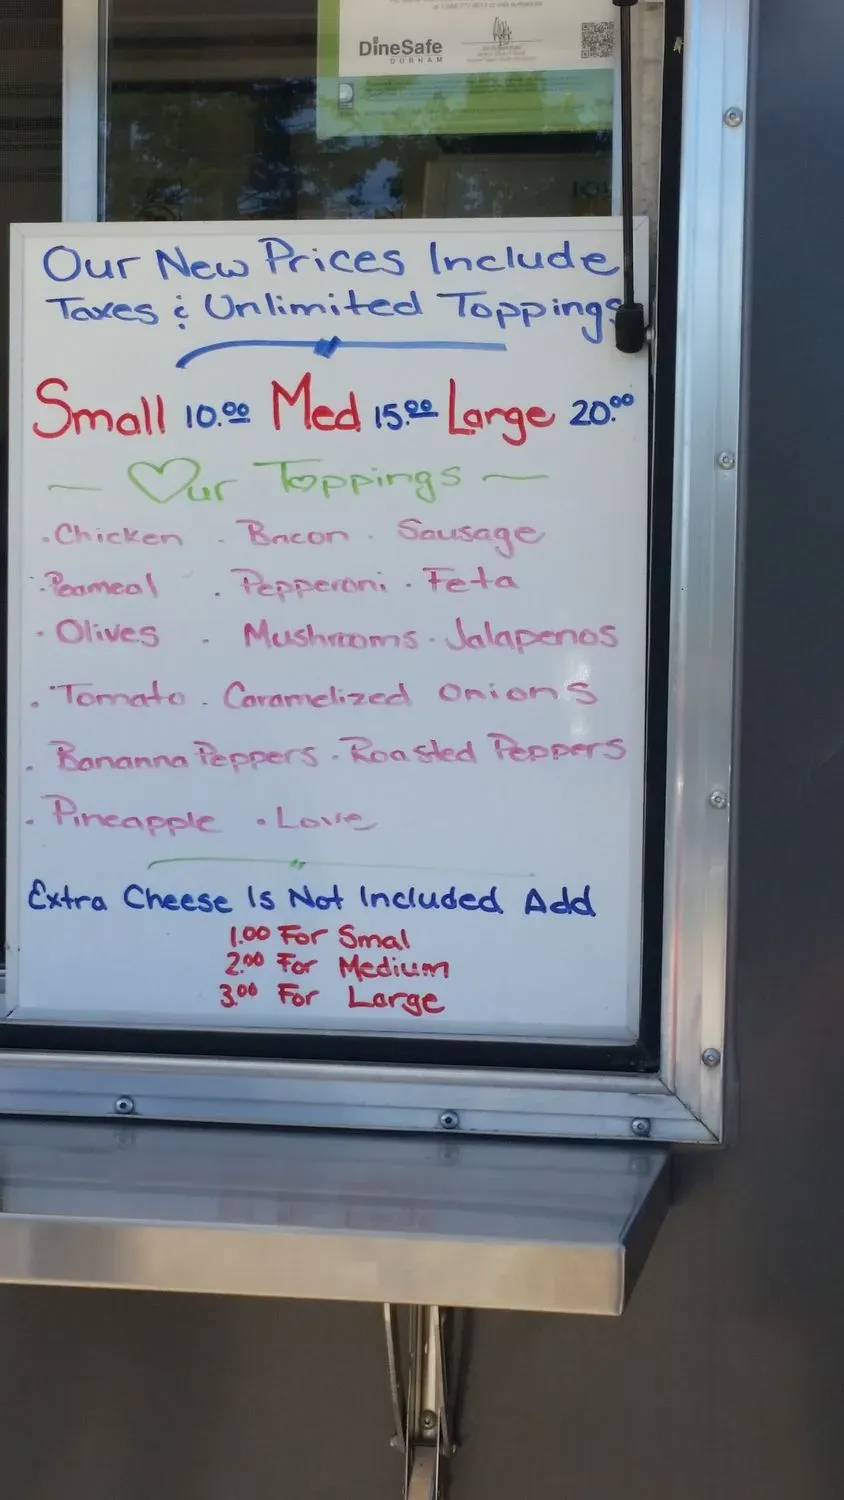 DineSafe
DURHAM
Our New Prices Include
Taxes & Unlimited Toppings
Small 10.00 Med 15.00 Large 20.00
~ Our Toppings ~
• Chicken • Bacon • Sausage
• Peameal • Pepperoni • Feta
• Olives • Mushrooms • Jalapenos
• Tomato • Caramelized Onions
• Bananna Peppers • Roasted Peppers
• Pineapple • Love
Extra Cheese Is Not Included Add
1.00 For Smal
2.00 For Medium
3.00 For Large